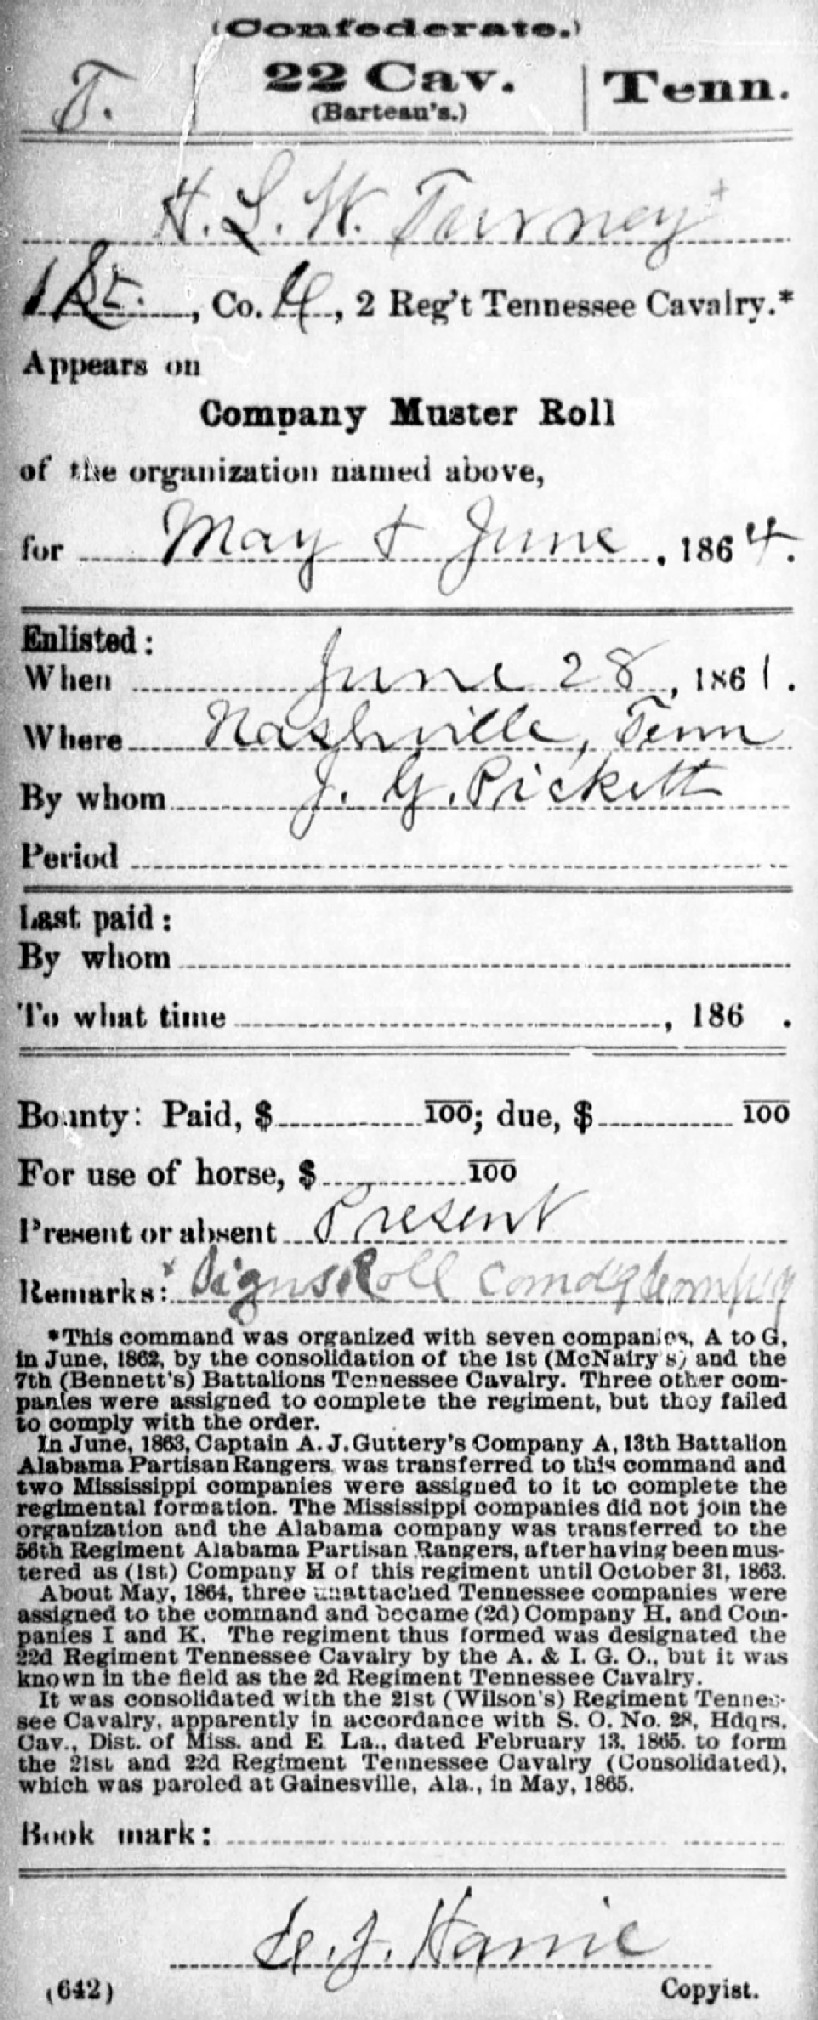 (Confederate.)
T. 22 Cav. Tenn.
(Barteau's.)
H. L. W. Turney +
1 Lt. , Co. H , 2 Reg't Tennessee Cavalry.*
Appears on
Company Muster Roll
of the organization named above,
for May & June , 1864.
Enlisted:
When June 28 , 1861.
Where Nashville, Tenn
By whom J. G. Pickett
Period
Last paid:
By whom
To what time , 186 .
Bounty: Paid, $ 100; due, $ 100
For use of horse, $ 100
Present or absent Present
Remarks: + Signs Roll comdg
*This command was organized with seven companies, A to G,
in June, 1862, by the consolidation of the 1st (McNairy's) and the
7th (Bennett's) Battalions Tennessee Cavalry. Three other com-
panies were assigned to complete the regiment, but they failed
to comply with the order.
In June, 1863, Captain A. J. Guttery's Company A, 13th Battalion
Alabama Partisan Rangers, was transferred to this command and
two Mississippi companies were assigned to it to complete the
regimental formation. The Mississippi companies did not join the
organization and the Alabama company was transferred to the
56th Regiment Alabama Partisan Rangers, after having been mus-
tered as (1st) Company H of this regiment until October 31, 1863.
About May, 1864, three unattached Tennessee companies were
assigned to the command and became (2d) Company H, and Com-
panies I and K. The regiment thus formed was designated the
22d Regiment Tennessee Cavalry by the A. & I. G. O., but it was
known in the field as the 2d Regiment Tennessee Cavalry.
It was consolidated with the 21st (Wilson's) Regiment Tennes-
see Cavalry, apparently in accordance with S. O. No. 28, Hdqrs.
Cav., Dist. of Miss. and E. La., dated February 13, 1865, to form
the 21st and 22d Regiment Tennessee Cavalry (Consolidated),
which was paroled at Gainesville, Ala., in May, 1865.
Book mark:
(642) Copyist.